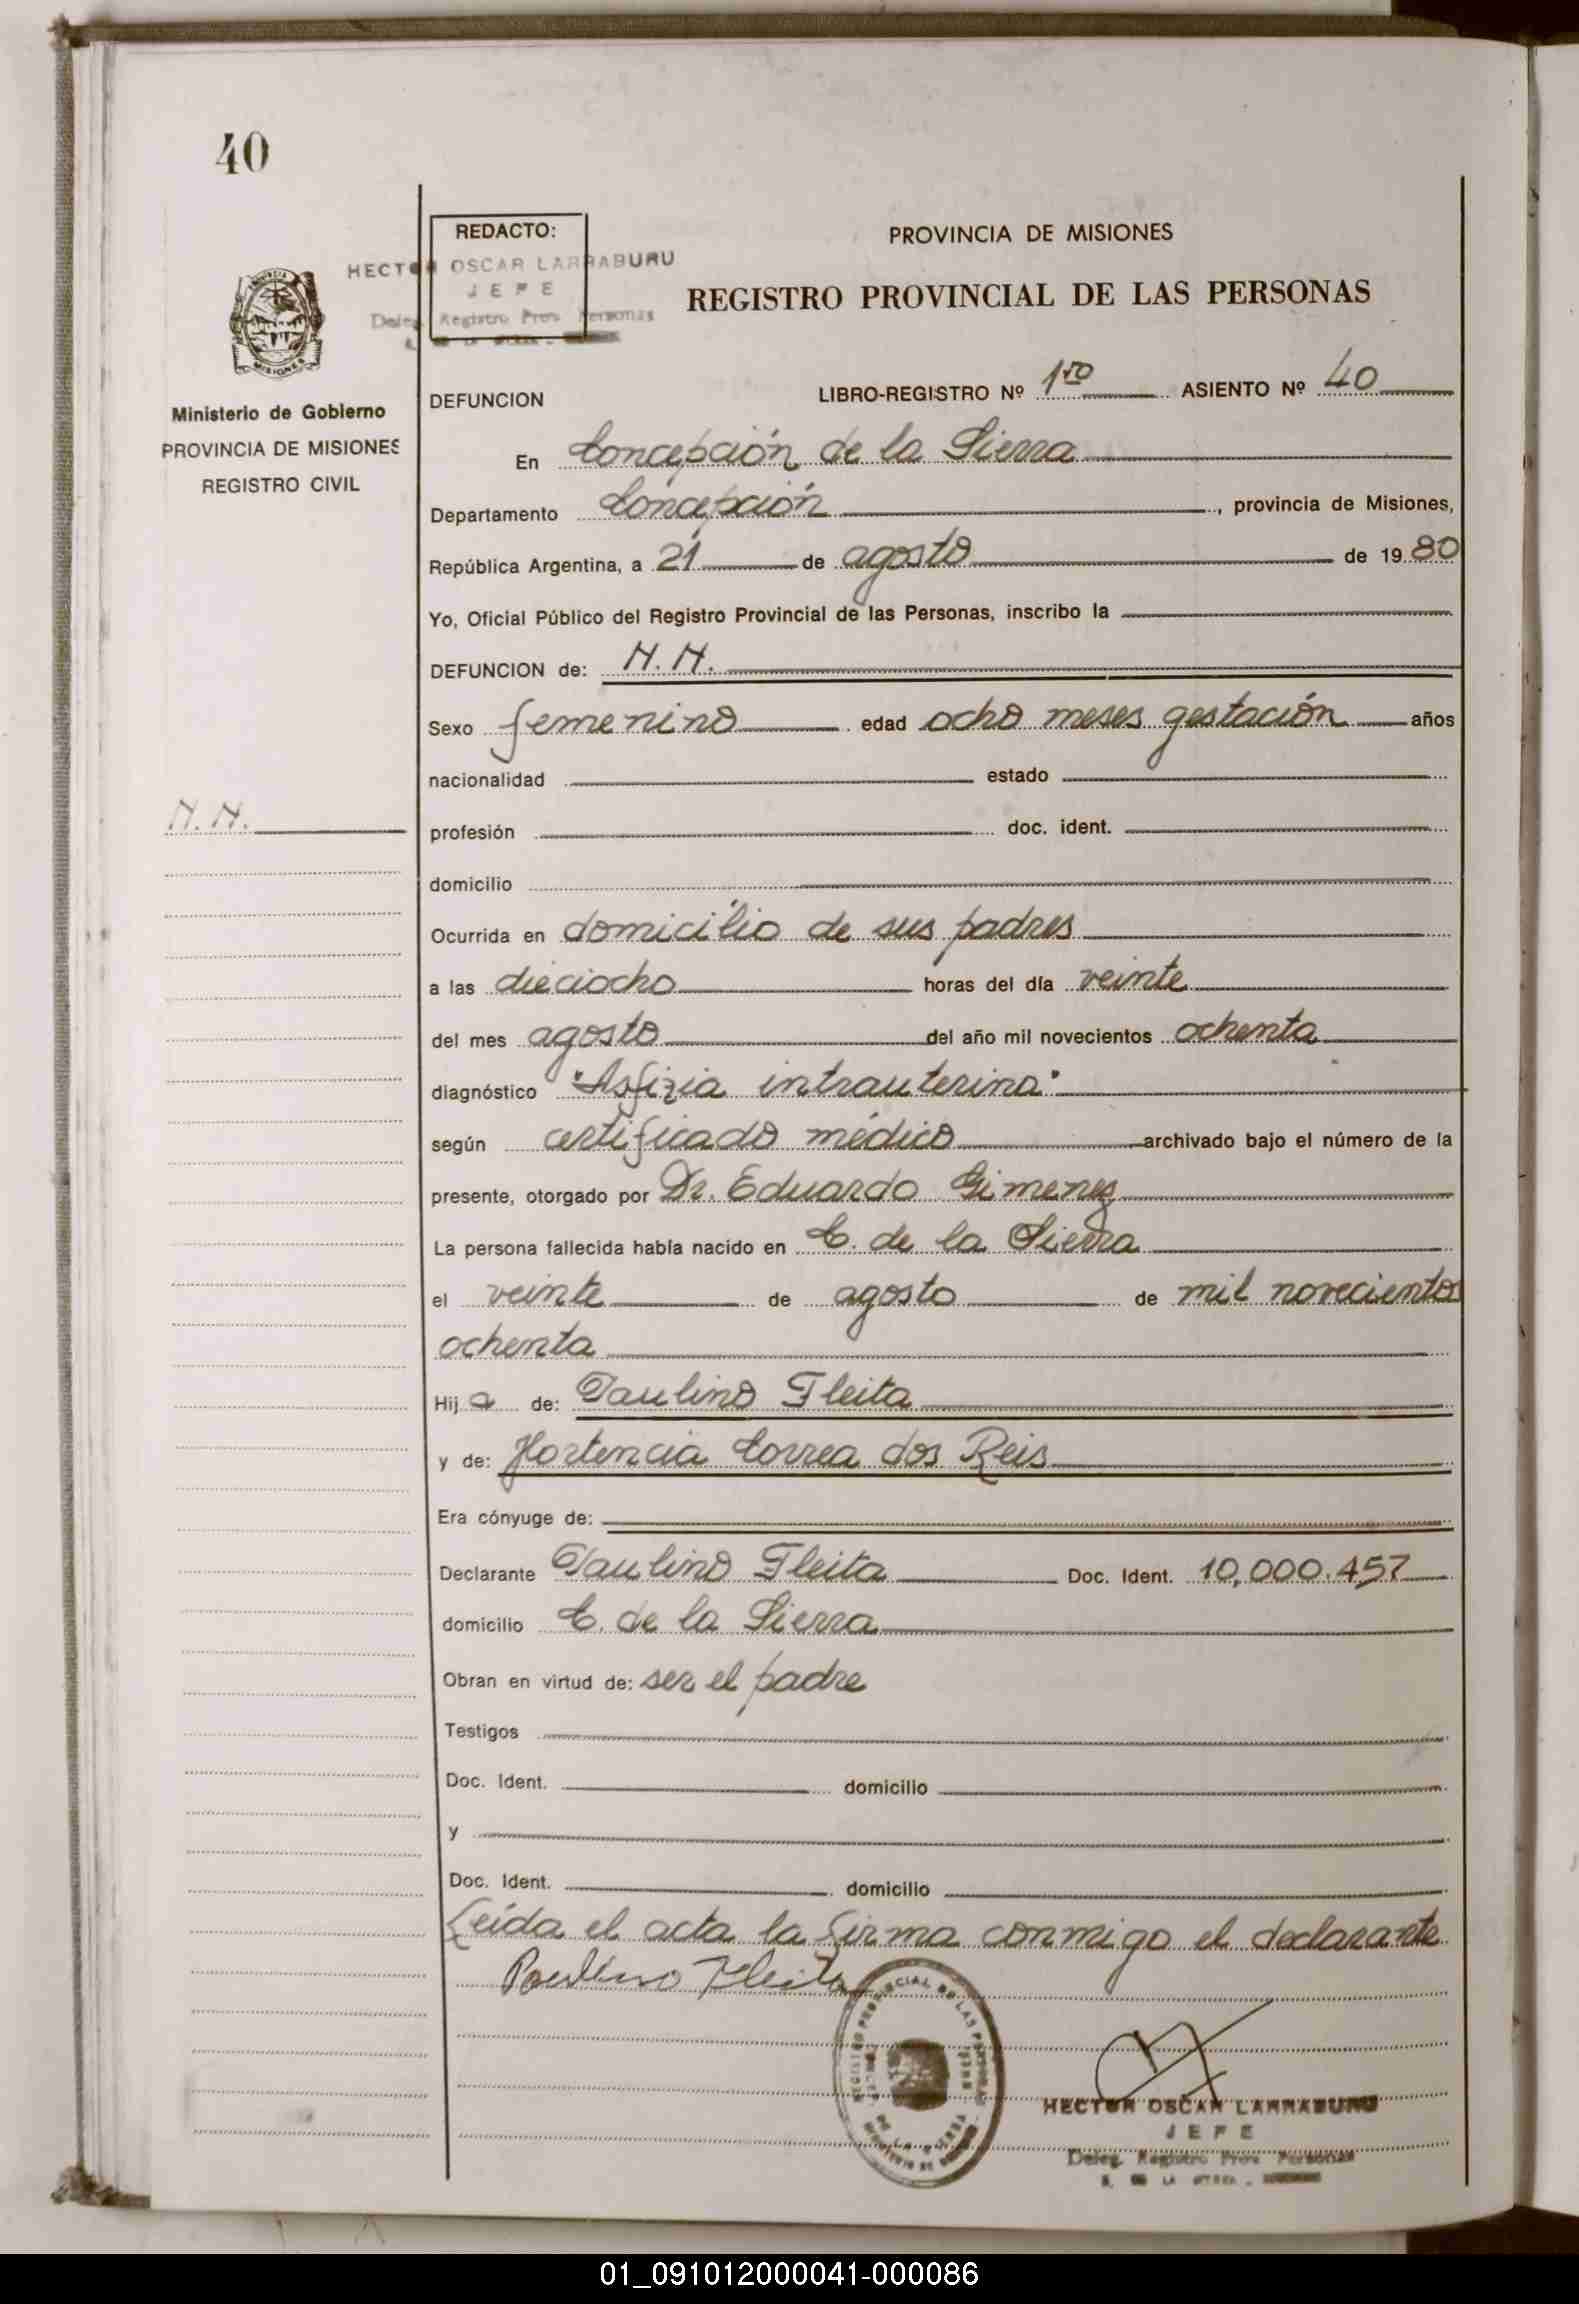 40
REDACTO:
HECTOR OSCAR LARRABURU
JEFE
Deleg. Registro Prov. Personas
PROVINCIA DE MISIONES
REGISTRO PROVINCIAL DE LAS PERSONAS
MISIONES
Ministerio de Gobierno
PROVINCIA DE MISIONES
REGISTRO CIVIL
DEFUNCION LIBRO-REGISTRO Nº 1ro ASIENTO Nº 40
En Concepción de la Sierra
Departamento Concepción, provincia de Misiones,
República Argentina, a 21 de agosto de 1980
Yo, Oficial Público del Registro Provincial de las Personas, inscribo la
DEFUNCION de: N.N.
Sexo femenino edad ocho meses gestación años
nacionalidad estado
N.N.
profesión doc. ident.
domicilio
Ocurrida en domicilio de sus padres
a las dieciocho horas del día veinte
del mes agosto del año mil novecientos ochenta
diagnóstico "Asfizia intrauterina"
según certificado médico archivado bajo el número de la
presente, otorgado por Dr. Eduardo Gimenez
La persona fallecida había nacido en C. de la Sierra
el veinte de agosto de mil novecientos
ochenta
Hij a de: Paulino Fleita
y de: Hortencia Correa dos Reis
Era cónyuge de:
Declarante Paulino Fleita Doc. Ident. 10,000.457
domicilio C. de la Sierra
Obran en virtud de: ser el padre
Testigos
Doc. Ident. domicilio
y
Doc. Ident. domicilio
Leída el acta la firma conmigo el declarante
Paulino Fleita
REGISTRO PROVINCIAL DE LAS PERSONAS
HECTOR OSCAR LARRABURU
JEFE
Deleg. Registro Prov. Personas
01_091012000041-000086